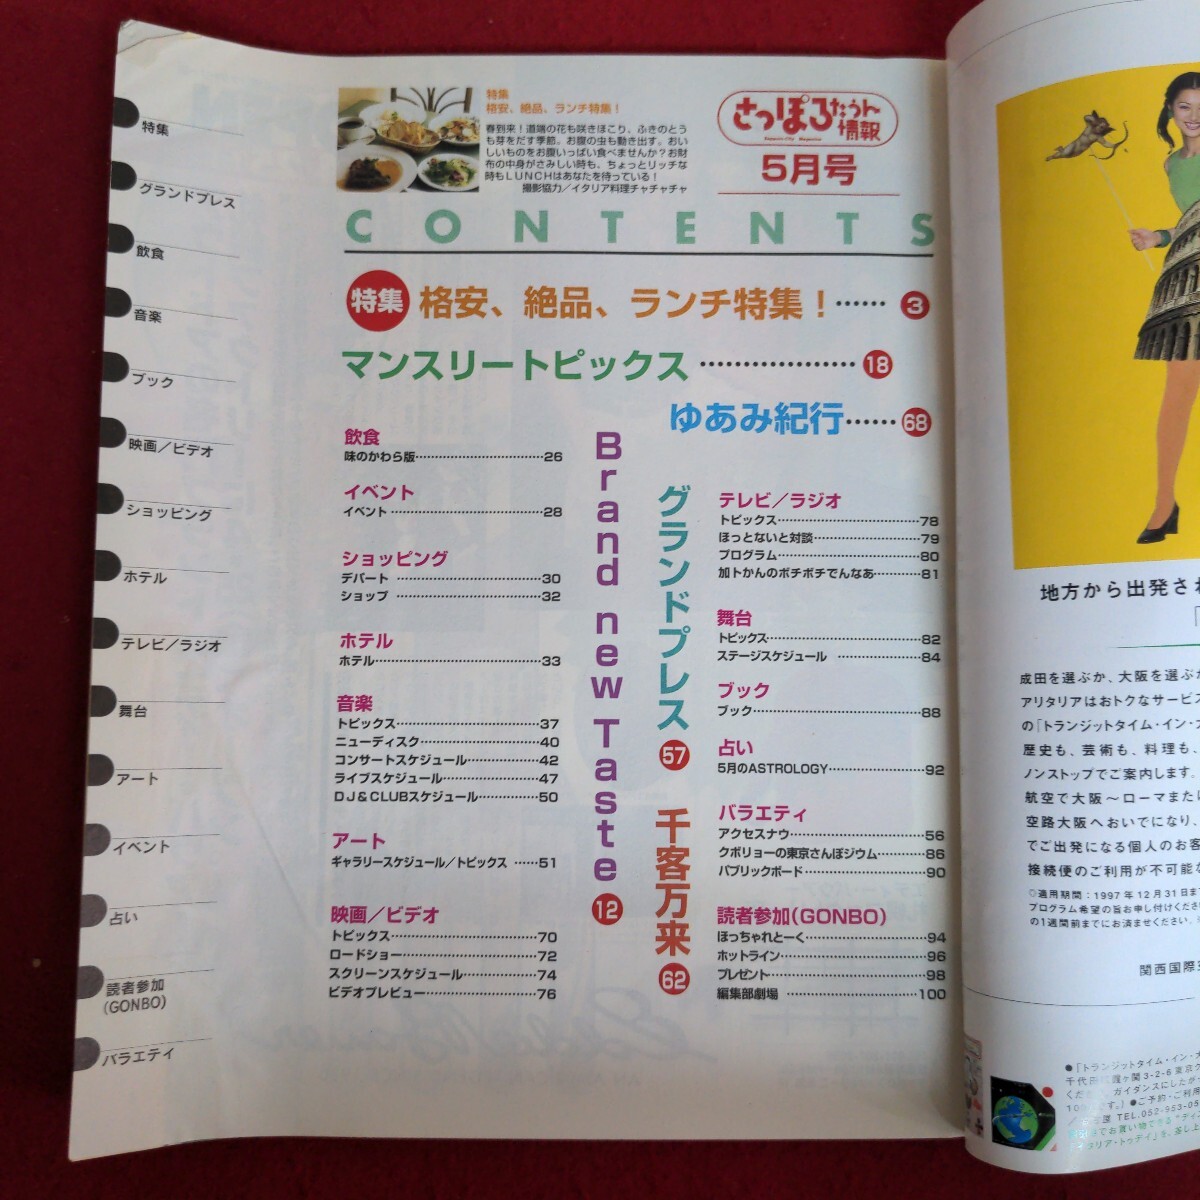 特集
グランドプレス
飲食
音楽
ブック
映画／ビデオ
ショッピング
ホテル
テレビ／ラジオ
舞台
アート
イベント
占い
読者参加
(GONBO)
バラエティ
特集
格安、絶品、ランチ特集！
春到来！道端の花も咲きほこり、ふきのとう
も芽をだす季節。お腹の虫も動き出す。おい
しいものをお腹いっぱい食べませんか？お財
布の中身がさみしい時も、ちょっとリッチな
時もLUNCHはあなたを待っている！
撮影協力／イタリア料理チャチャチャ
さっぽろたうん情報
Sapporo City Magazine
5月号
CONTENTS
特集 格安、絶品、ランチ特集！…… 3
マンスリートピックス ……………… 18
ゆあみ紀行…… 68
飲食
味のかわら版……………………26
イベント
イベント……………………28
ショッピング
デパート……………………30
ショップ……………………32
ホテル
ホテル……………………33
音楽
トピックス……………………37
ニューディスク……………………40
コンサートスケジュール……………42
ライブスケジュール……………47
DJ＆CLUBスケジュール……………50
アート
ギャラリースケジュール／トピックス……51
映画／ビデオ
トピックス……………………70
ロードショー……………………72
スクリーンスケジュール……………74
ビデオプレビュー……………………76
Brand new Taste 12
グランドプレス 57
千客万来 62
テレビ／ラジオ
トピックス……………………78
ほっとないと対談……………………79
プログラム……………………80
加トかんのボチボチでんなあ…………81
舞台
トピックス……………………82
ステージスケジュール……………84
ブック
ブック……………………88
占い
5月のASTROLOGY……………92
バラエティ
アクセスナウ……………………56
クボリョーの東京さんぽジウム…………86
パブリックボード……………………90
読者参加(GONBO)
ほっちゃれとーく……………………94
ホットライン……………………96
プレゼント……………………98
編集部劇場……………………100
地方から出発され
「
成田を選ぶか、大阪を選ぶか
アリタリアはおトクなサービス
の「トランジットタイム・イン・
歴史も、芸術も、料理も、
ノンストップでご案内します。
航空で大阪〜ローマまた
空路大阪へおいでになり、
でご出発になる個人のお客
接続便のご利用が不可能な
○適用期間：1997年12月31日ま
プログラム希望の旨お申し付けくださ
の1週間前までにお済ませください。
関西国際
●「トランジットタイム・イン・
千代田区霞ヶ関3-2-6東京